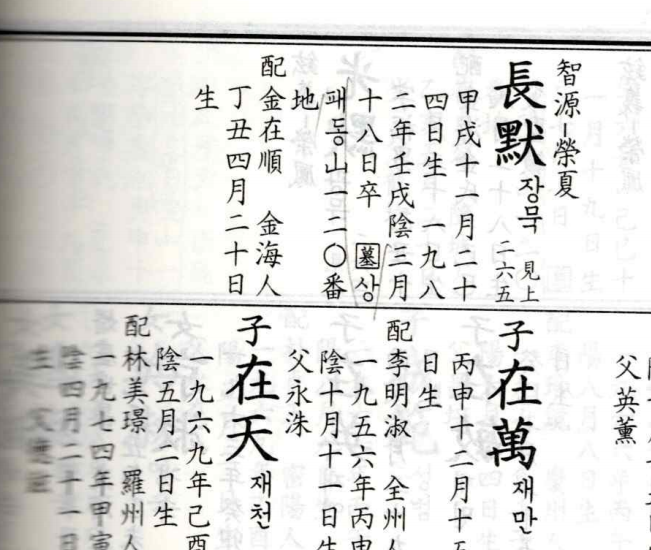 智源-榮夏
長默 장묵 見上二六五
甲戌十二月二十
四日生 一九八
二年壬戌陰三月
十八日卒 墓상
패동山二〇番
地
配金在順 金海人
丁丑四月二十日
生
父英薰
子在萬 재만
丙申十二月十五
日生
配李明淑 全州人
一九五六年丙申
陰十月十一日生
父永洙
子在天 재천
一九六九年己酉
陰五月二日生
配林美璟 羅州人
一九七四年甲寅
陰四月二十一日
生